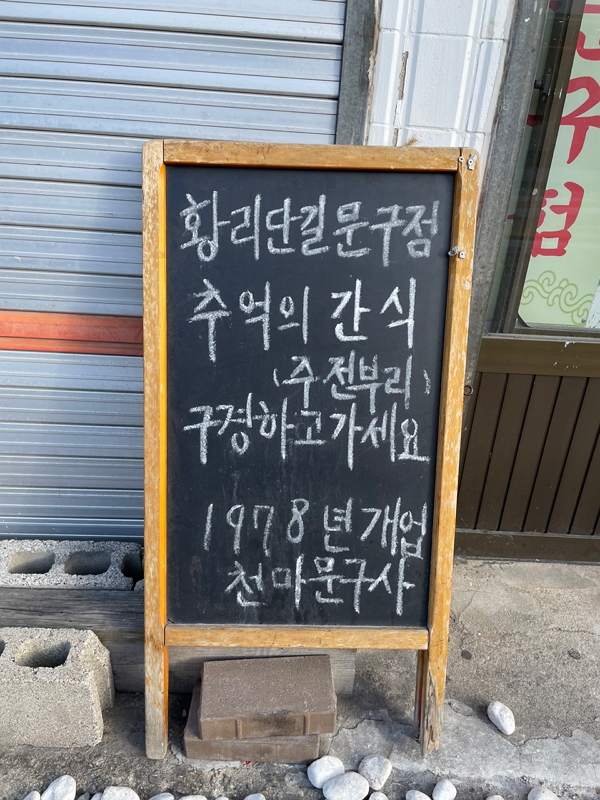 황리단길문구점
추억의 간식
(주전부리)
구경하고가세요
1978년개업
천마문구사
점